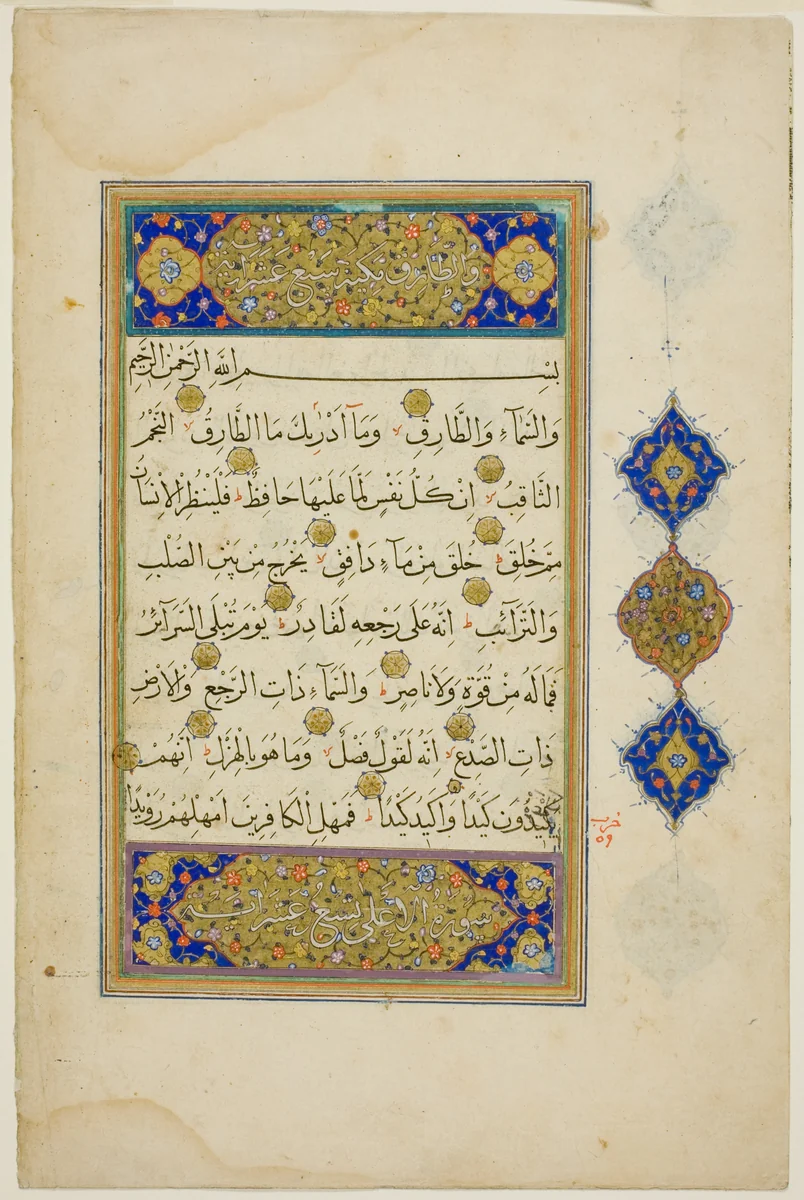 والطارق مكية سبع عشر اية
بِسْمِ اللهِ الرَّحْمٰنِ الرَّحِيمِ
وَالسَّمَآءِ وَالطَّارِقِ ۙ وَمَآ اَدْرٰيكَ مَا الطَّارِقُ ۙ النَّجْمُ
الثَّاقِبُ ۙ اِنْ كُلُّ نَفْسٍ لَمَّا عَلَيْهَا حَافِظٌ ط فَلْيَنْظُرِ الْاِنْسَانُ
مِمَّ خُلِقَ ط خُلِقَ مِنْ مَآءٍ دَافِقٍ ۙ يَخْرُجُ مِنْ بَيْنِ الصُّلْبِ
وَالتَّرَآئِبِ ط اِنَّهُ عَلَى رَجْعِهِ لَقَادِرٌ ط يَوْمَ تُبْلَى السَّرَآئِرُ
فَمَا لَهُ مِنْ قُوَّةٍ وَلَا نَاصِرٍ ط وَالسَّمَآءِ ذَاتِ الرَّجْعِ وَالْاَرْضِ
ذَاتِ الصَّدْعِ ۙ اِنَّهُ لَقَوْلٌ فَصْلٌ ۙ وَمَا هُوَ بِالْهَزْلِ ط اِنَّهُمْ
يَكِيدُونَ كَيْدًا وَاَكِيدُ كَيْدًا ط فَمَهِّلِ الْكَافِرِينَ اَمْهِلْهُمْ رُوَيْدًا
حزب
٥٩
سورة الاعلى تسع عشر اية